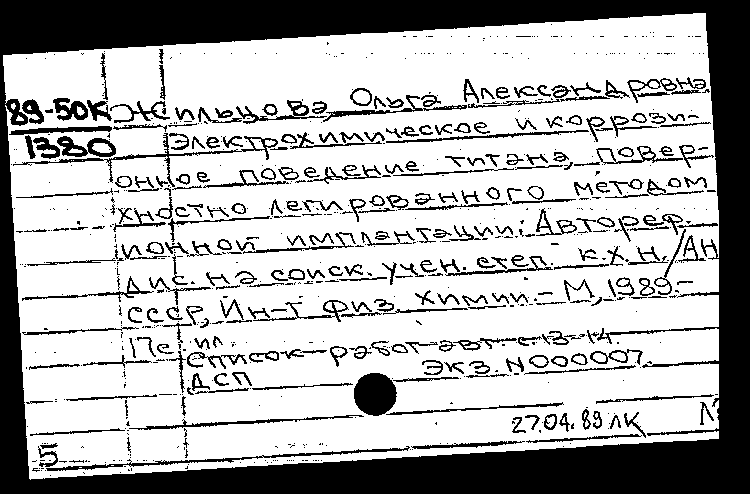 89-50К Жильцова, Ольга Александровна
1380 Электрохимическое и коррози-
онное поведение титана, повер-
хностно легированного методом
ионной имплантации: Автореф.
дис. на соиск. учен. степ. к.х.н. / АН
СССР, Ин-т физ. химии. - М, 1989. -
17с. ил.
Список работ авт. с. 13-14.
ДСП Экз. N000007.
27.04.89 ЛК
5